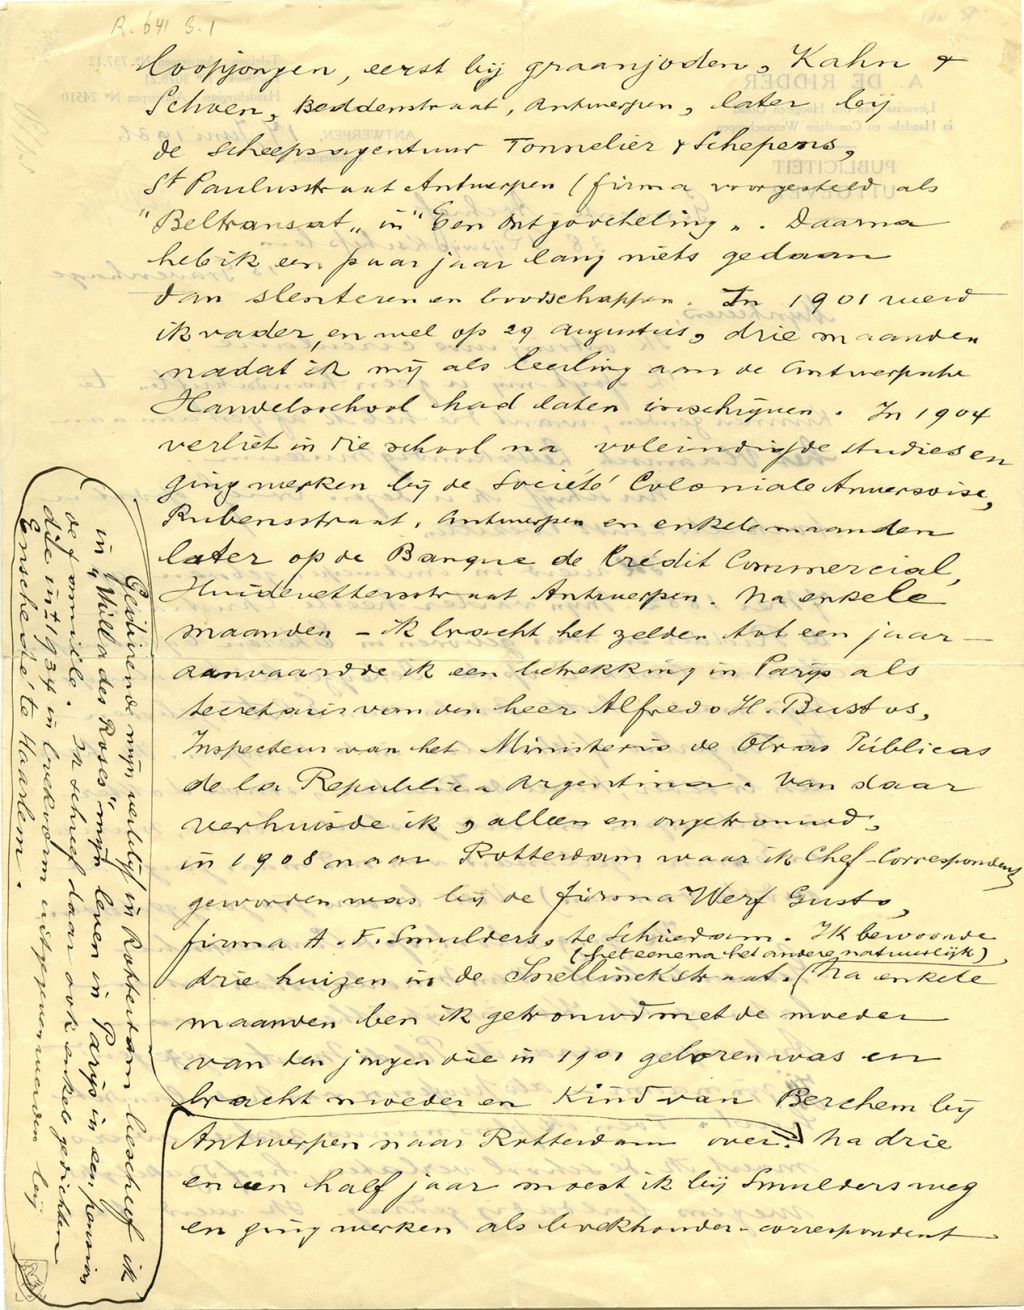 R. 641 B. 1
loopjongen, eerst bij graanjoden, Kahn &
Schoen, Beddenstraat, Antwerpen, later bij
de scheepsagentuur Tonnelier & Schepens,
St Paulusstraat Antwerpen (firma voorgesteld als
"Beltransat" in "Een Ontgoocheling". Daarna
heb ik een paar jaar lang niets gedaan
dan slenteren en boodschappen. In 1901 werd
ik vader, en wel op 29 augustus, drie maanden
nadat ik mij als leerling aan de Antwerpsche
Handelsschool had laten inschrijven. In 1904
verliet ik die school na voleindigde studies en
ging werken bij de Société Coloniale Anversoise,
Rubensstraat, Antwerpen en enkele maanden
later op de Banque de Crédit Commercial,
Huidevettersstraat Antwerpen. Na enkele
maanden – ik bracht het zelden tot een jaar –
aanvaardde ik een betrekking in Parijs als
secretaris van den heer Alfredo H. Bustos,
Inspecteur van het Ministerio de Obras Públicas
de la Republica Argentina. Van daar
verhuisde ik, alleen en ongetrouwd,
in 1908 naar Rotterdam waar ik Chef-Correspondent
geworden was bij de firma Werf Gusto,
firma A. F. Smulders, te Schiedam. Ik bewoonde
(het eene na het andere natuurlijk)
drie huizen in de Snellinckstraat. Na enkele
maanden ben ik getrouwd met de moeder
van den jongen die in 1901 geboren was en
bracht moeder en Kind van Berchem bij
Antwerpen naar Rotterdam over. Na drie
en een half jaar moest ik bij Smulders weg
en ging werken als boekhouder-correspondent
Gedurende mijn verblijf in Rotterdam beschreef ik
in "Villa des Roses" mijn leven in Parijs in een pension
de famille. Ik schreef daar ook enkele gedichten
die in 1934 in boekvorm uitgegeven werden bij
Enschedé te Haarlem.